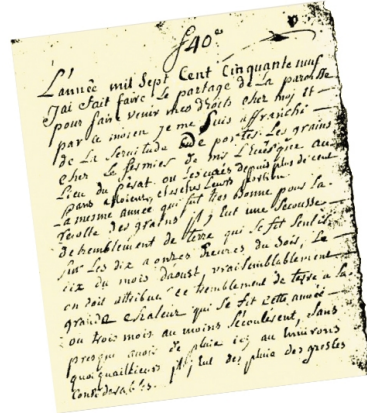 f 40e
L'année mil Sept Cent Cinquante neuf
J'ai fait faire Le partage de La paroisse
pour faire venir mes droits chez moy et
par ce moien je me Suis affranchi
de La Servitude de porter Les grains
chez Le fermier de mr L'evesque au
Lieu du ou Les curés depuis plus de cent
pans Leurs portion.
La meme année qui fut tres bonne pour la
recolte des grains il y eut une Secousse
de tremblement de terre qui se fit sentir
Sur Les dix a onzes heures du Soir, Le
dix du mois daoust, vraisemblablement
on doit attribuer ce tremblement de terre a la
grande chaleur qui Se fit cette année
ou trois mois au moins S'écoulerent, Sans
presque avoir de pluie icy au environs
quoiqu'ailleurs il y eut des pluie des gresles
Considerables.